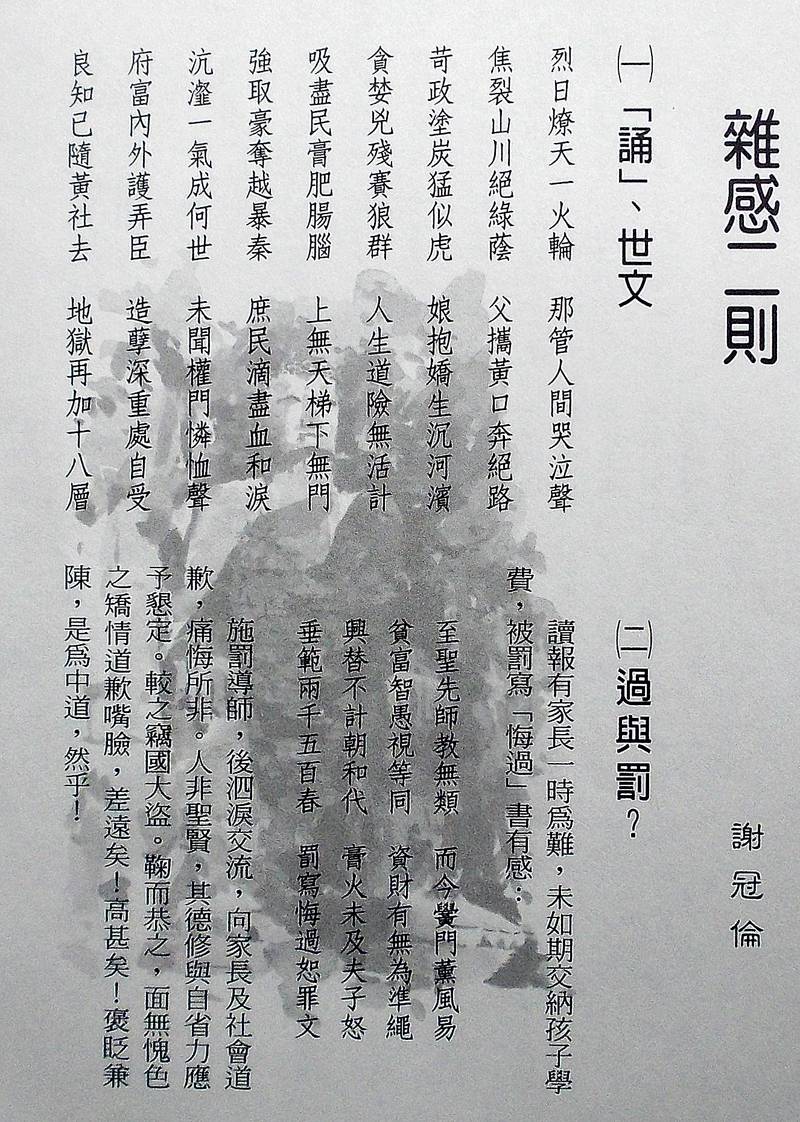 雜感二則
謝冠倫
㈠「誦」、世文
烈日燎天一火輪　那管人間哭泣聲
焦裂山川絕綠蔭　父攜黃口奔絕路
苛政塗炭猛似虎　娘抱嬌生沉河濱
貪婪兇殘賽狼群　人生道險無活計
吸盡民膏肥腸腦　上無天梯下無門
強取豪奪越暴秦　庶民滴盡血和淚
沆瀣一氣成何世　未聞權門憐恤聲
府富內外護弄臣　造孽深重處自受
良知已隨黃社去　地獄再加十八層
㈡過與罰？
讀報有家長一時為難，未如期交納孩子學
費，被罰寫「悔過」書有感：
至聖先師教無類　而今黌門薰風易
貧富智愚視等同　資財有無為準繩
興替不計朝和代　膏火未及夫子怒
垂範兩千五百春　罰寫悔過恕罪文
施罰導師，後泗淚交流，向家長及社會道
歉，痛悔所非。人非聖賢，其德修與自省力應
予懇定。較之竊國大盜。鞠而恭之，面無愧色
之矯情道歉嘴臉，差遠矣！高甚矣！褒貶兼
陳，是為中道，然乎！